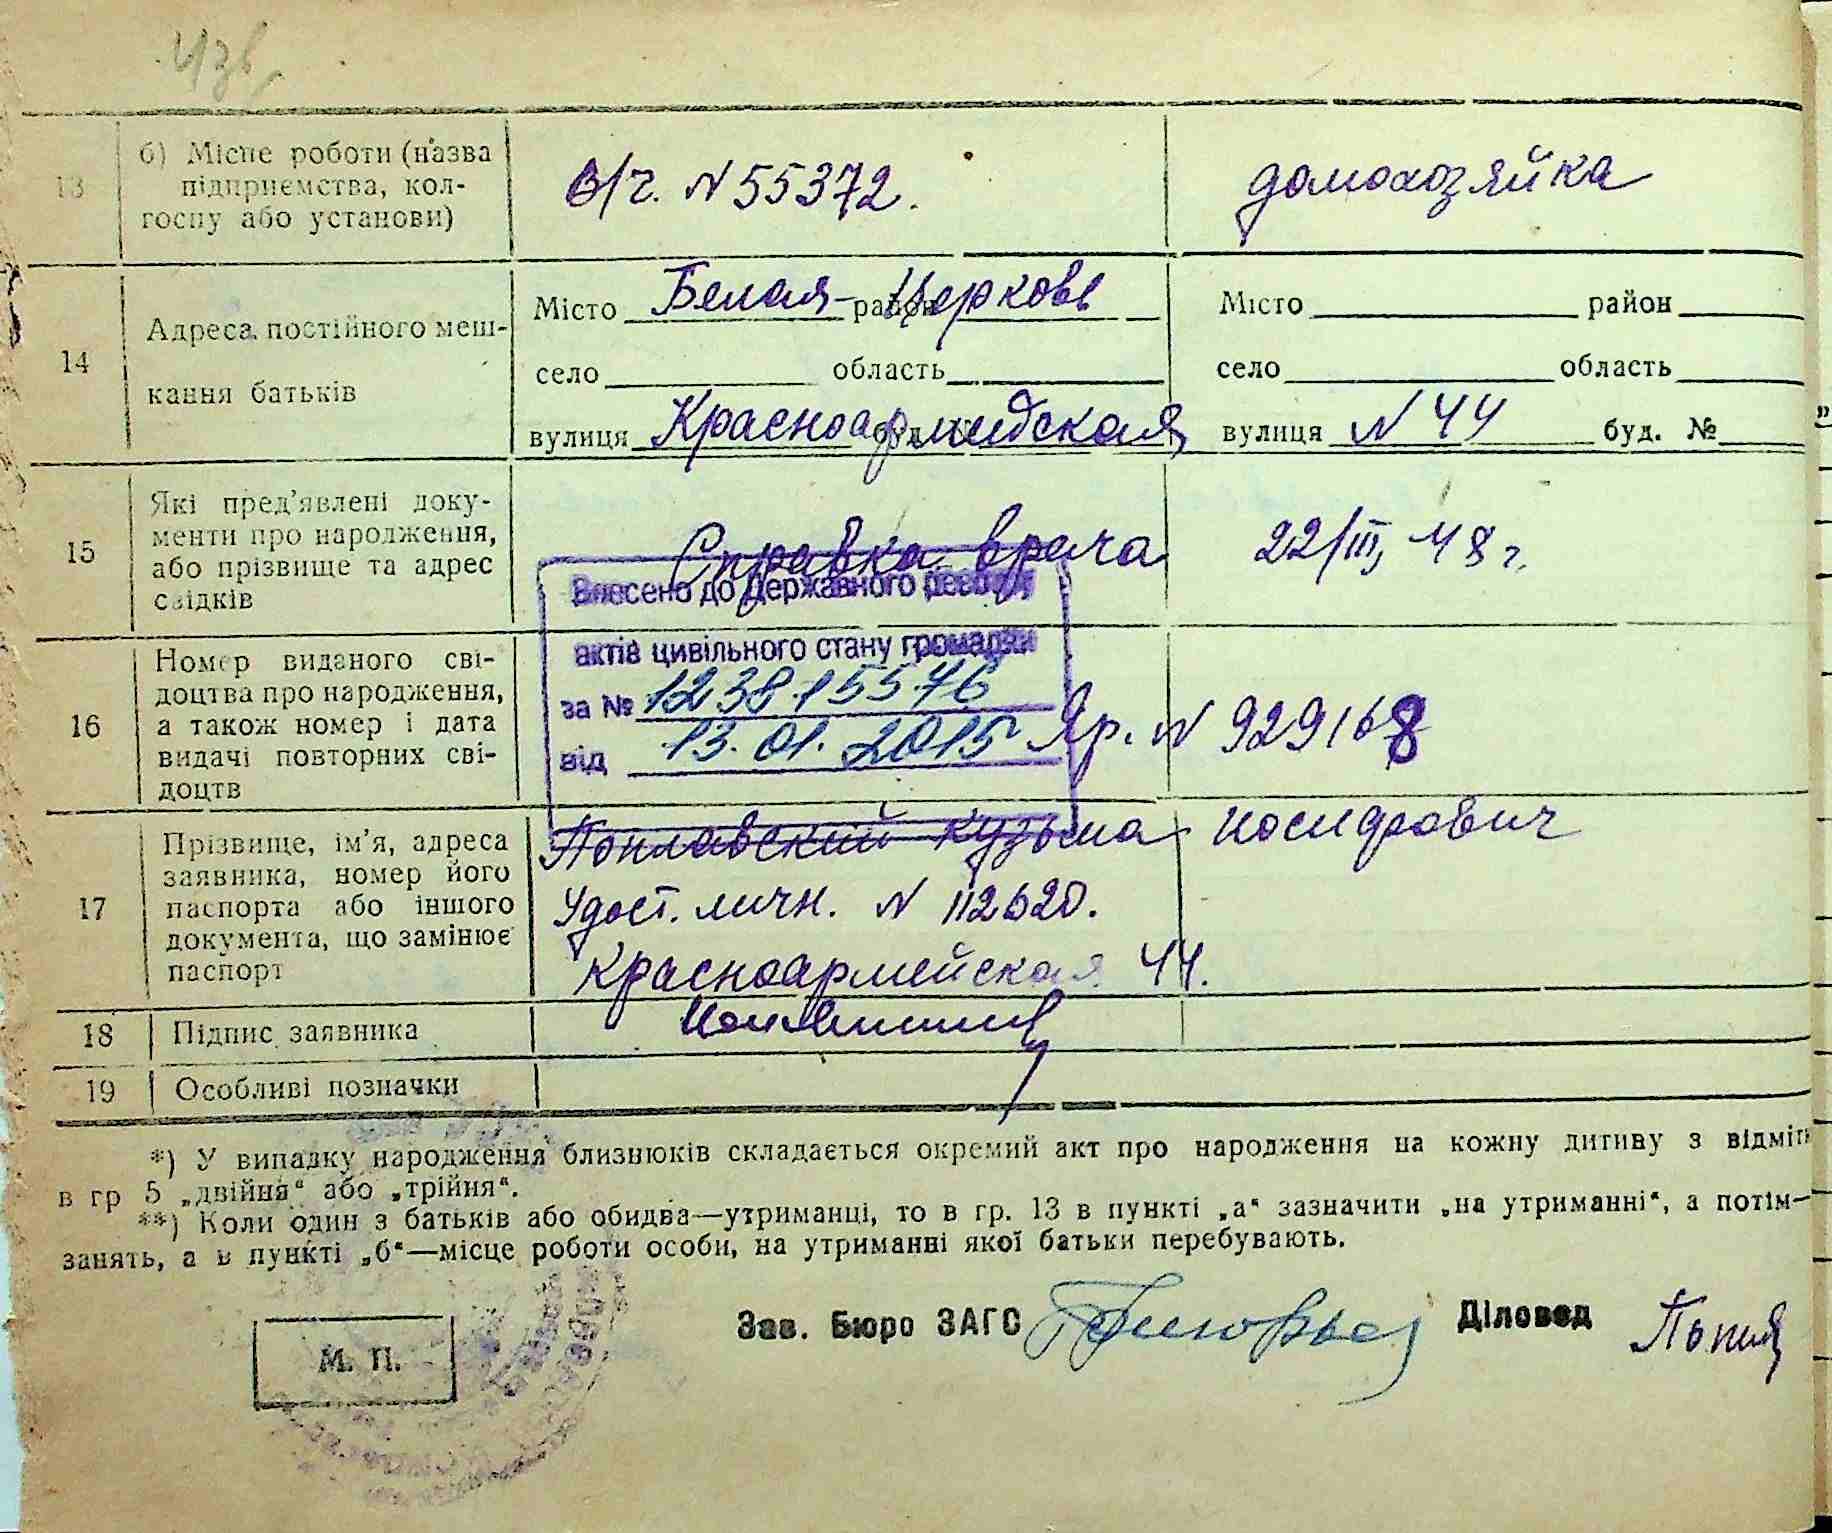 13 б) Місце роботи (назва підприємства, колгоспу або установи) В/ч. N 55372. домохозяйка
14 Адреса постійного мешкання батьків
Місто Белая-Церковь район Місто район
село область село область
вулиця Красноармейская вулиця N 44 буд. №
15 Які пред'явлені документи про народження, або прізвище та адрес свідків Справка врача 22/III 48 г.
Внесено до Державного реєстру
актів цивільного стану громадян
за № 1238 15576
від 13.01.2015
16 Номер виданого свідоцтва про народження, а також номер і дата видачі повторних свідоцтв Яр. N 929168
17 Прізвище, ім'я, адреса заявника, номер його паспорта або іншого документа, що замінює паспорт Поплавский Кузьма Иосифович
Удост. личн. N 112620.
Красноармейская 44.
18 Підпис заявника
19 Особливі позначки
*) У випадку народження близнюків складається окремий акт про народження на кожну дитину з відміт
в гр 5 „двійня“ або „трійня“.
**) Коли один з батьків або обидва—утриманці, то в гр. 13 в пункті „а“ зазначити „на утриманні“, а потім—
занять, а в пункті „б“—місце роботи особи, на утриманні якої батьки перебувають.
Зав. Бюро ЗАГС Діловод
М. П.